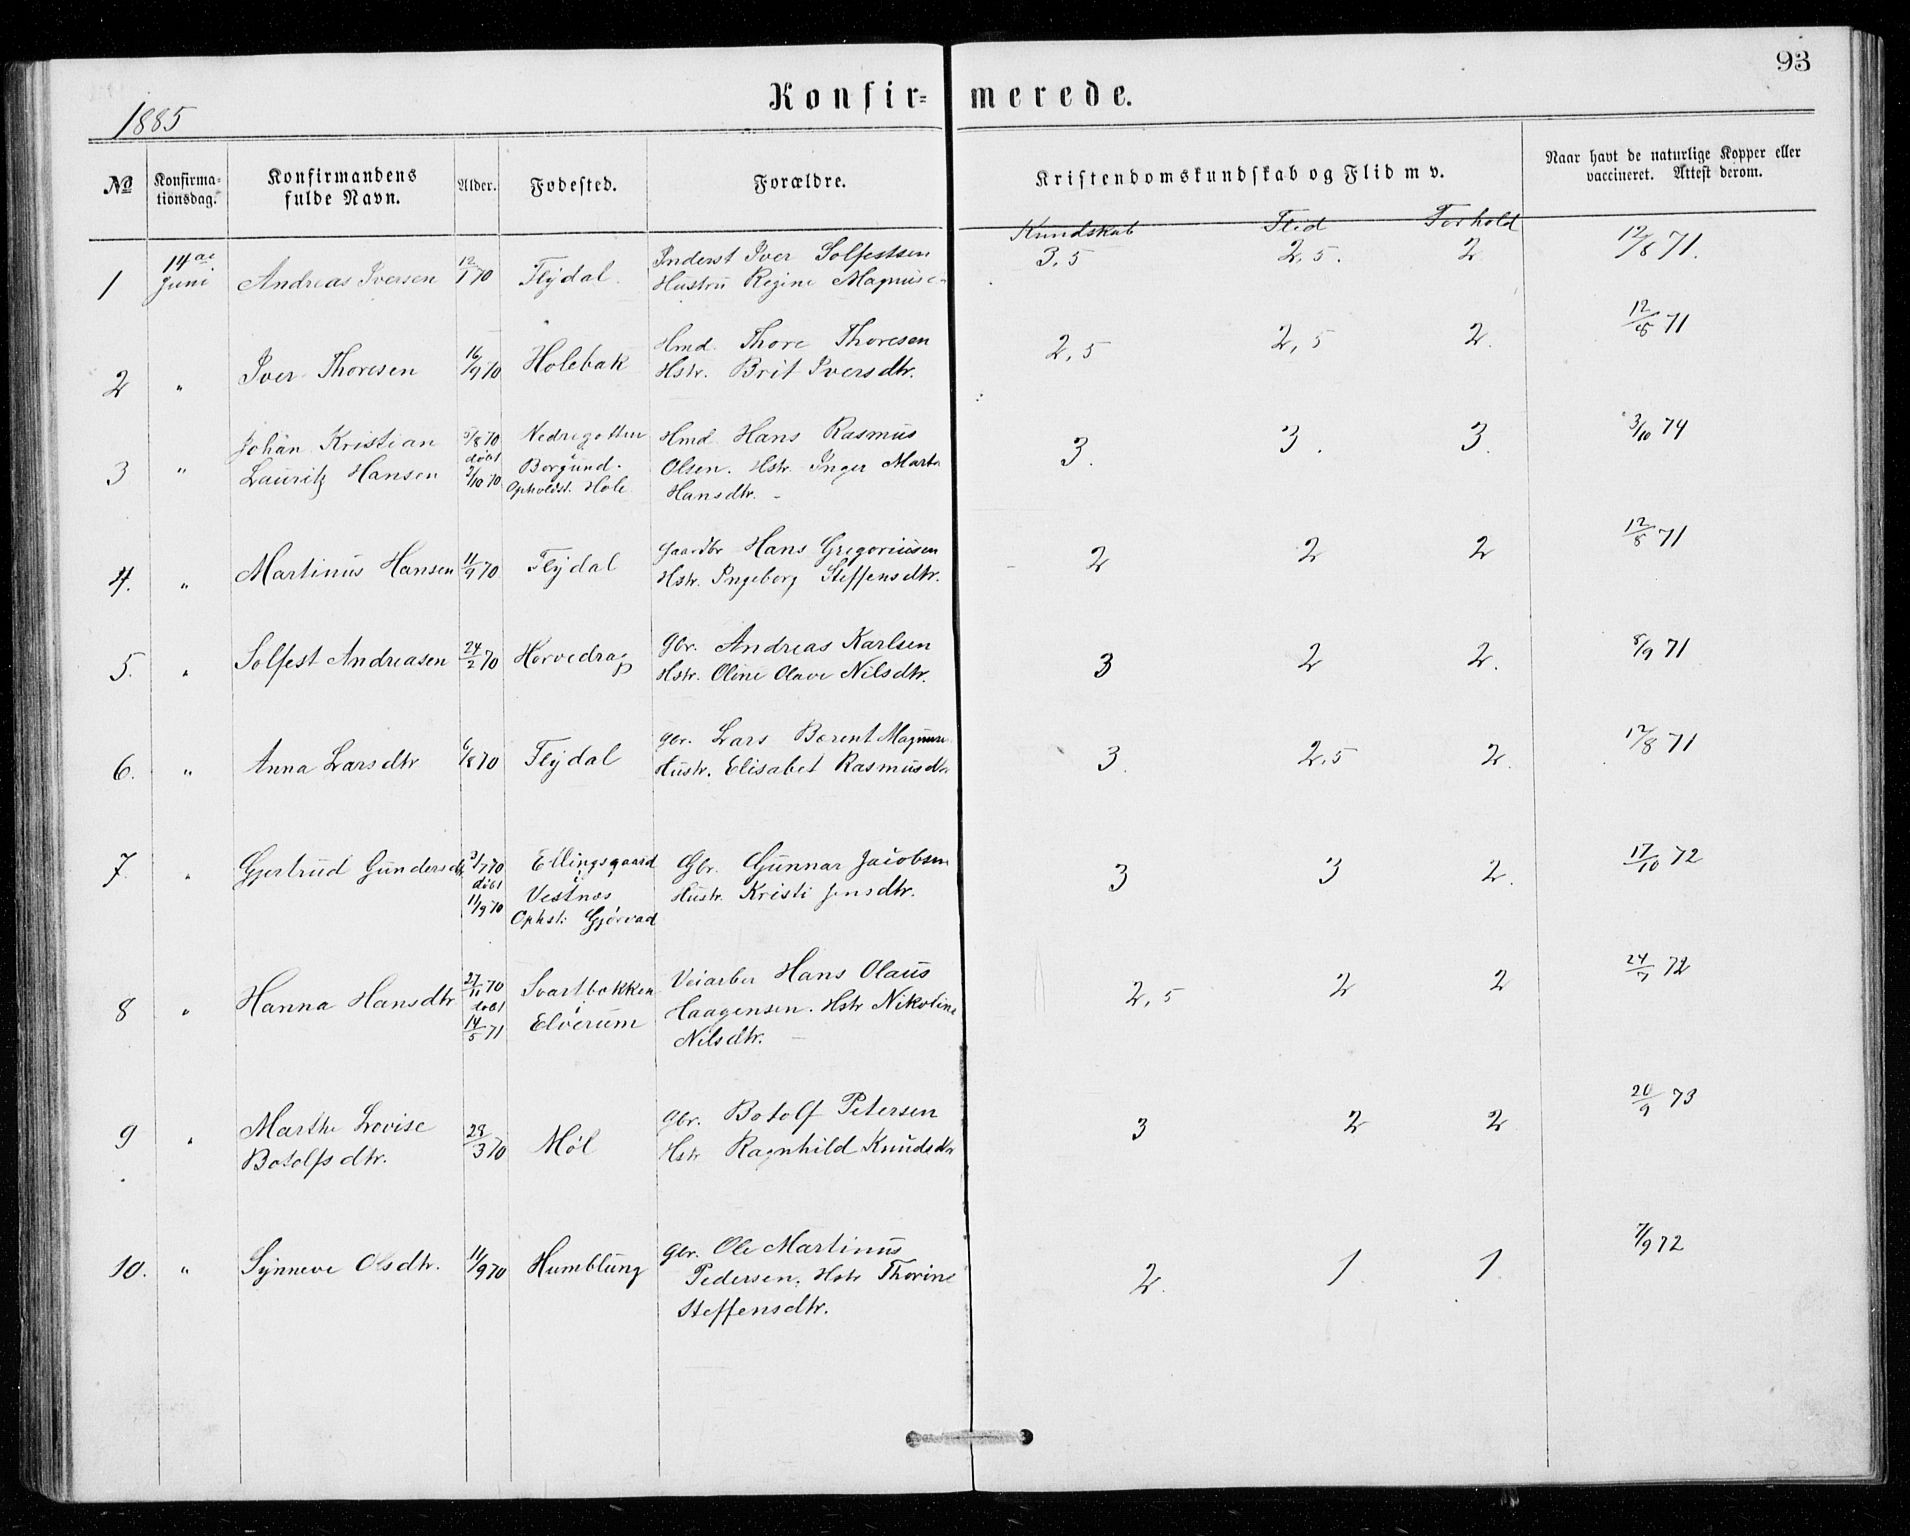 93
Konfir= merede.
1885
No
Konfirma-
tionsdag.
Konfirmandens
fulde Navn.
Alder.
Fodested.
Forældre.
Kristendomskundskab og Flid m v.
Naar havt de naturlige Kopper eller
vaccineret. Attest derom.
Kundskab Flid Forhold
1 14de Juni Andreas Iversen 12/1 70 Flydal Inderst Iver Solfestsen 3,5 2,5. 2 12/8 71.
Hustru Regine
2 " Iver Thoresen 16/9 70 Holebak Hmd. Thore Thoresen 2,5 2,5 2. 12/8 71
Hstr. Brit Iversdtr.
3 " Johan Kristian 5/8 70 Hmd. Hans Rasmus 3. 3. 3. 3/10 74
Lauritz Hansen døbt 2/10 70 Borgund. Olsen. Hstr. Inger Marta
Opholdst. Hole Hansdtr. -
4. " Martinus Hansen 11/9 70 Flydal Gaardbr Hans Gregoriusen 2 2 2 12/8 71
Hstr. Ingeborg Steffensdtr.
5. " Solfest Andreasen 24/2 70 Horvedrag Gbr. Andreas Karlsen 3 2 2. 8/9 71
Hstr. Oline Olave Nilsdtr.
6. " Anna Larsdtr 6/8 70 Flydal Gbr. Lars Berent 3. 2,5 2. 12/8 71
Hustr. Elisabet Rasmusdtr
7. " Gjertrud Gundersdtr 3/7 70 Ellingsgaard Gbr. Gunnar Jacobsen 3 3 2. 17/10 72
døbt i Hustr. Kristi Jensdtr.
11/9 70 Vestnes
Ophst: Gjørvad
8 " Hanna Hansdtr 27/11 70 Svartbekken Veiarbr Hans Olaus 2,5 2 2 24/7 72
døbt i Haagensen. Hstr Nikoline
14/5 71 Elverum Nilsdtr. -
9 " Marthe Lovise 29/3 70 Møl Gbr. Botolf Petersen 3 2 2 20/9 73
Botolfsdtr. Hstr Ragnhild Knudsdtr
10. " Synneve Olsdtr. 11/9 70 Humblung Gbr. Ole Martinus 2. 1. 1. 7/9 72
Pedersen. Hstr Thorine
Steffensdtr.